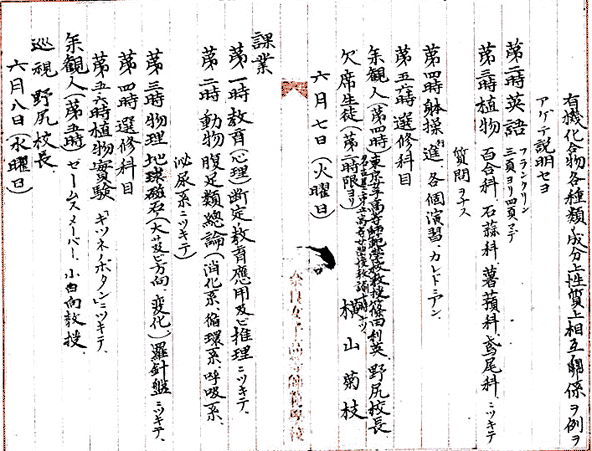 有機化合物各種類ノ成分上性質上相互ノ関係ヲ例ヲ
アゲテ説明セヨ
第二時英語 フランクリン 三頁ヨリ四頁マデ
第三時植物 百合科、石蒜科、薯蕷科、鳶尾科、ニツキテ
質問ヲナス
第四時躰操 進、各個演習、カレドニアン、
第五六時選修科目
参観人(第四時)東京女子高等師範学校教授篠田利英、野尻校長
欠席生徒(第二時限ヨリ) 山菊枝
六月七日(火曜日)
奈良女子高等師範学校
課業
第一時教育(心理)断定教育應用及ビ推理ニツキテ、
第二時動物腹足類總論(消化系、循環系、呼吸系、
泌尿系ニツキテ)
第三時物理 地球磁石(大サ及ビ方向、変化)羅針盤ニツキテ、
第四時選修科目
第五六時植物實驗「キツネノボタン」ニツキテ、
参観人(第五時)ゼームスメーバー、小日向教授
巡視 野尻校長、
六月八日(水曜日)